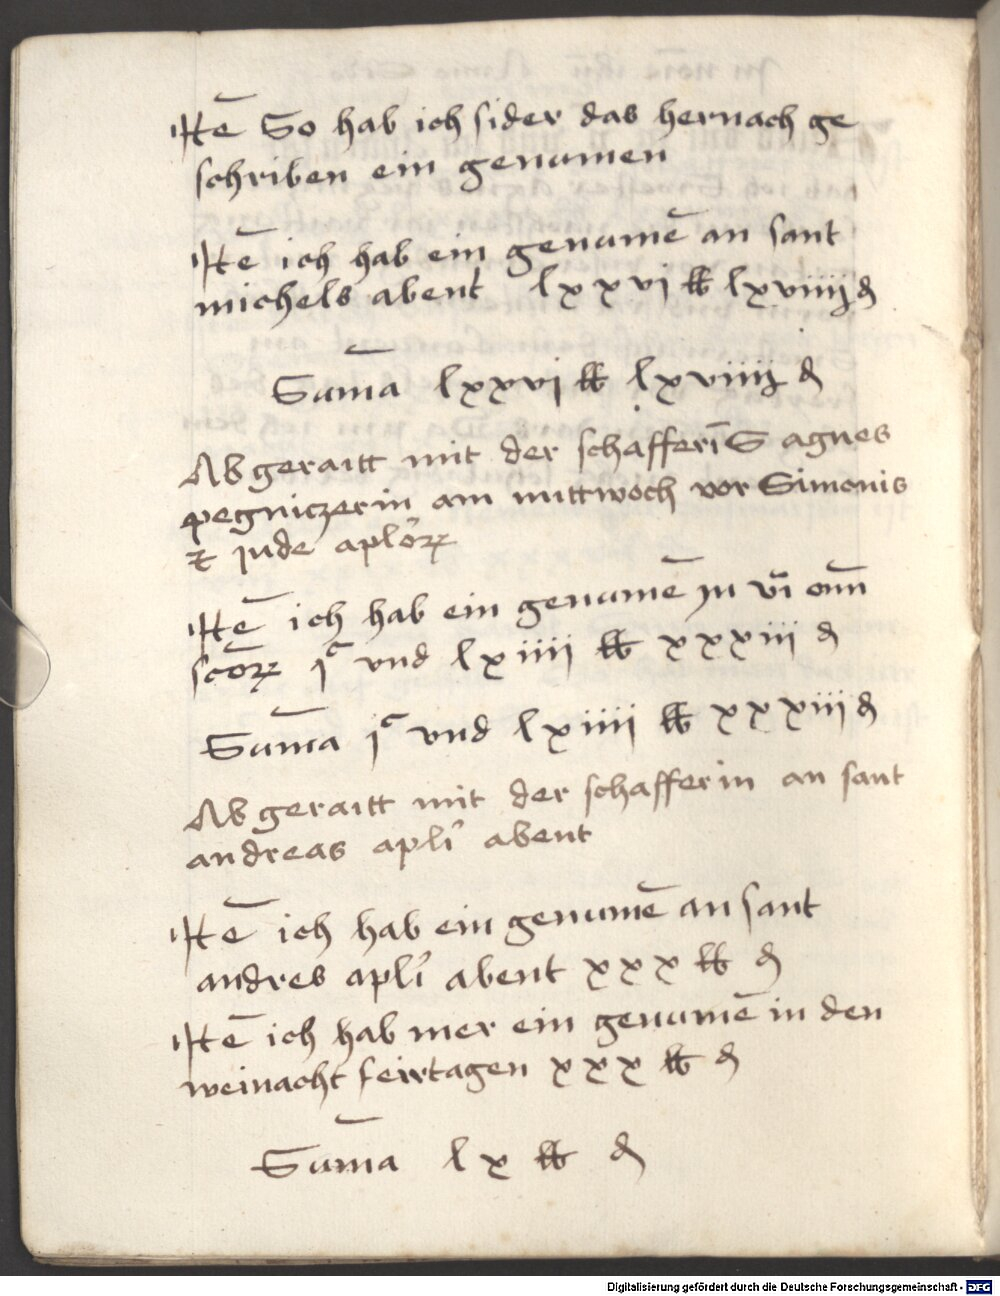 Itē So hab ich sider das hernach ge
schriben ein genumen
Itē ich hab ein genumē an sant
michels abent lxxvi ℔ lxviiij ₰
Sum̄a lxxvi ℔ lxviiij ₰
Abgeraitt mit der schafferin S agnes
pegniczerin am mittwoch vor Simonis
⁊ jude apl'oꝝ
Itē ich hab ein genumē in vi͂ om̄
sc̄oꝝ jᶜ vnd lxiiij ℔ xxxiij ₰
Sum̄a jᶜ vnd lxiiij ℔ xxxiij ₰
Abgeraitt mit der schafferin an sant
andreas apl'i abent
Itē ich hab ein genumē an sant
andres apl'i abent xxx ℔ ₰
Itē ich hab mer ein genumē in den
weinacht feirtagen xxx ℔ ₰
Sum̄a lx ℔ ₰
Digitalisierung gefördert durch die Deutsche Forschungsgemeinschaft - DFG